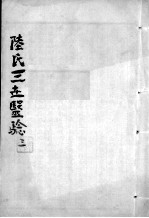 陸氏三世醫驗